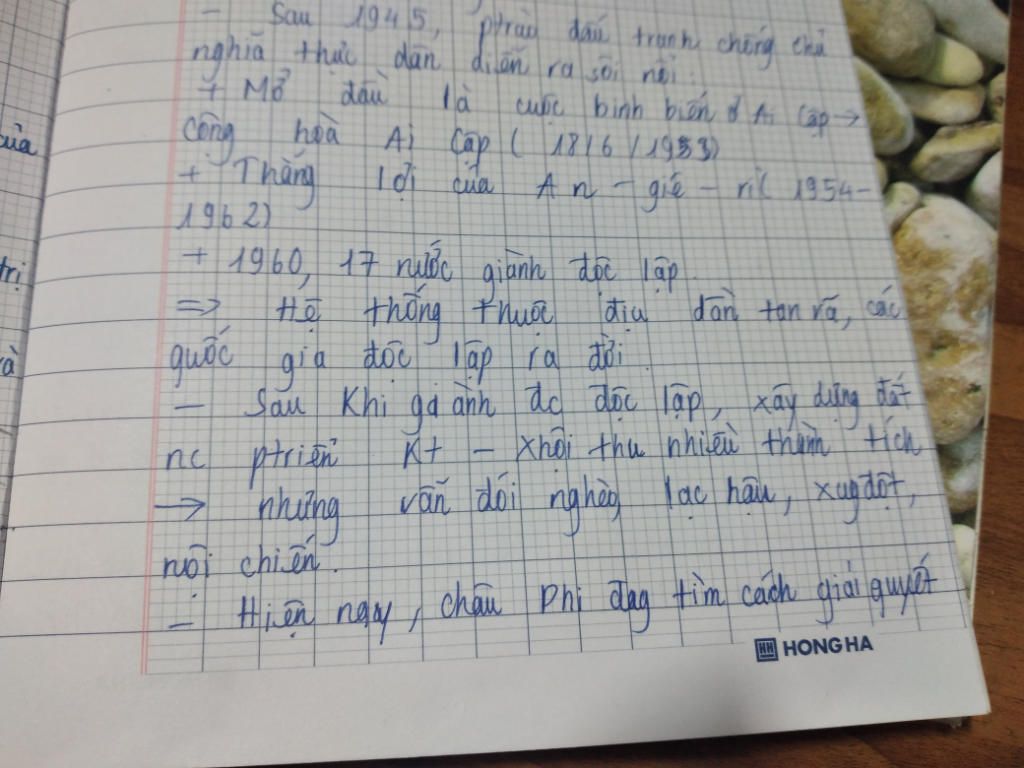 - Sau 1945, ptrào đấu tranh chống chủ
nghĩa thực dân diễn ra sôi nổi.
+ Mở đầu là cuộc binh biến ở Ai Cập →
cộng hoà Ai Cập (18/6/1953)
+ Thắng lợi của An-giê-ri (1954-
1962)
+ 1960, 17 nước giành độc lập
=> Hệ thống thuộc địa dần tan rã, các
quốc gia độc lập ra đời.
- Sau khi giành đc độc lập, xây dựng đất
nc ptriển kt - xhội thu nhiều thành tích
→ những vẫn đói nghèo lạc hậu, xugđột,
nội chiến.
- Hiện nay, châu Phi đag tìm cách giải quyết
HONG HA
của
trị